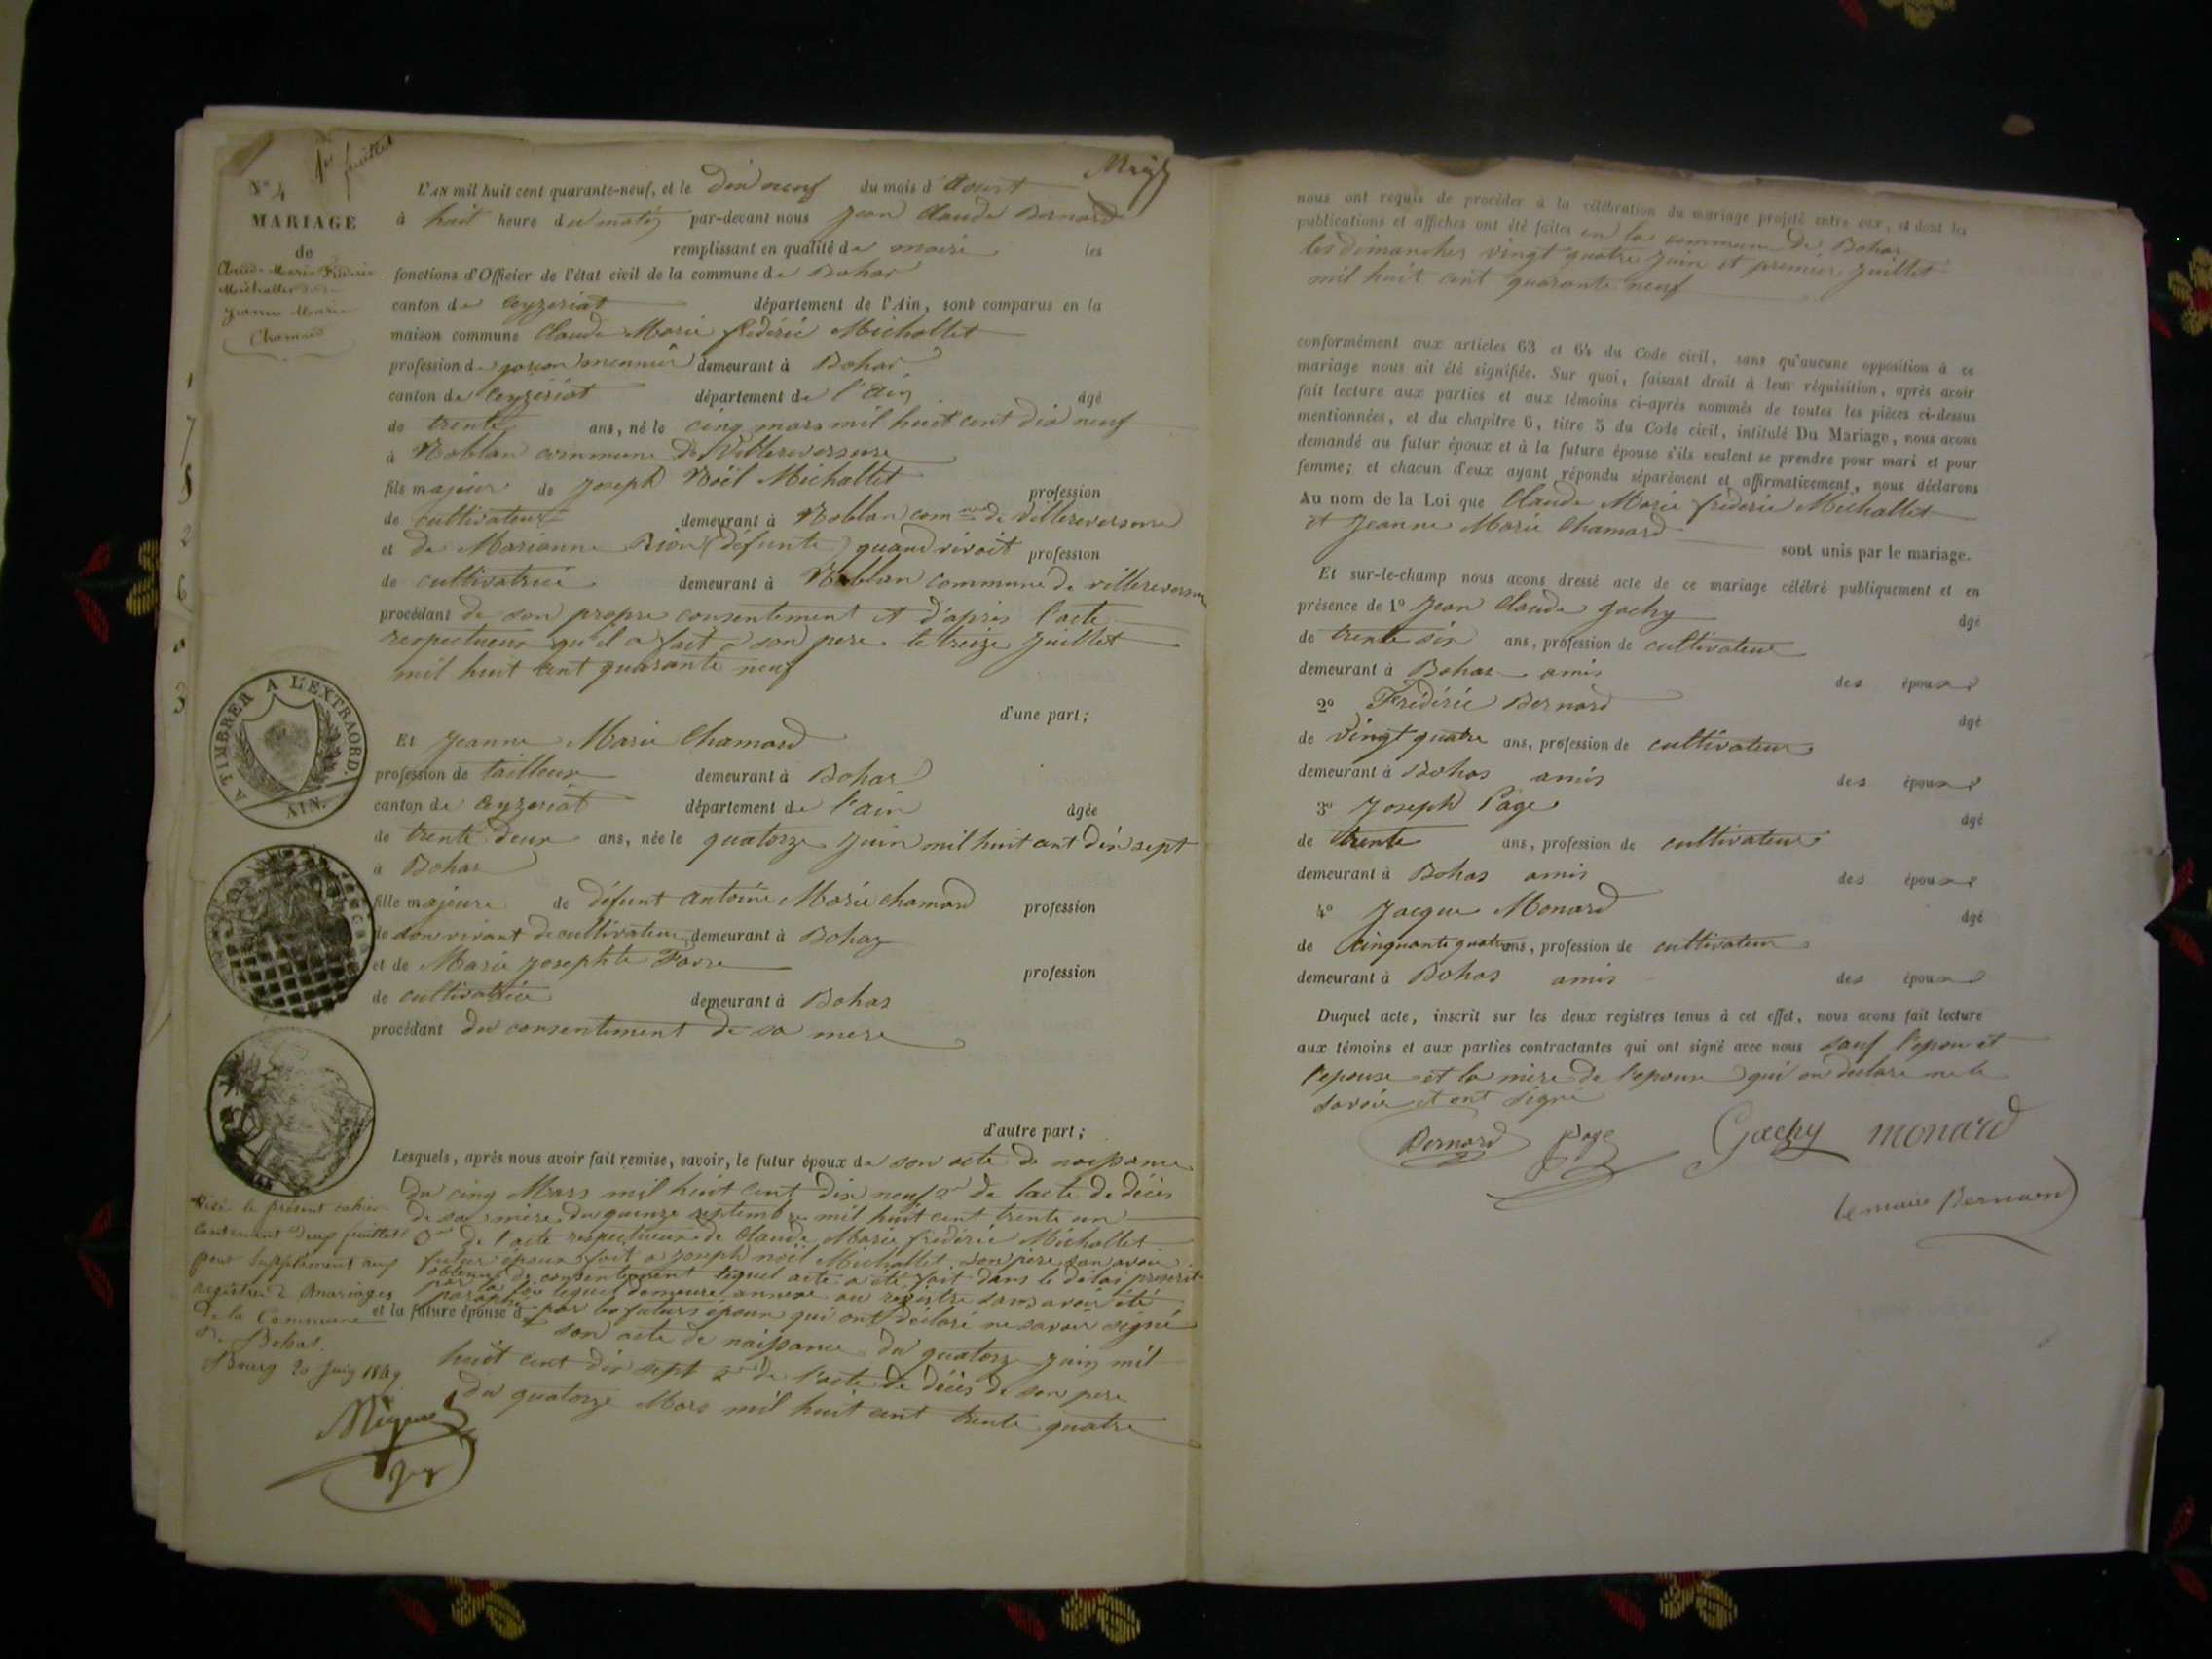 1er feuillet
N° 4
MARIAGE
de
Claude Marie Frédéric
Michallet
Jeanne Marie
Chamard
L'AN mil huit cent quarante-neuf, et le dix neuf du mois d'Aoust
à huit heure du matin par-devant nous Jean Claude Bernard
remplissant en qualité de maire les
fonctions d'Officier de l'état civil de la commune de Bohas
canton de Ceyzeriat département de l'Ain, sont comparus en la
maison commune Claude Marie frédéric Michallet
profession de garçon meunier demeurant à Bohas
canton de Ceyzeriat département de l'Ain âgé
de trente ans, né le cinq mars mil huit cent dix neuf
à Noblan commune de Villereversure
fils majeur de Joseph Noël Michallet profession
de cultivateur demeurant à Noblan comne de Villereversure
et de Marianne (défunte) quand vivoit profession
de cultivatrice demeurant à Noblan commune de villereversure
procédant de son propre consentement et d'après l'acte
respectueux qu'il a fait à son pere le treize Juillet
mil huit cent quarante neuf
d'une part;
Et Jeanne Marie Chamard
profession de tailleuse demeurant à Bohas
canton de Ceyzeriat département de l'ain âgée
de trente deux ans, née le quatorze Juin mil huit cent dix sept
à Bohas
fille majeure de défunt Antoine Marie chamard profession
de son vivant de cultivateur demeurant à Bohas
et de Marie Josephte Favre profession
de cultivatrice demeurant à Bohas
procédant du consentement de sa mere
d'autre part;
Lesquels, après nous avoir fait remise, savoir, le futur époux de son acte de naissance
du cinq Mars mil huit cent dix neuf 2° de l'acte de décès
de sa mère du quinze septembre mil huit cent trente un
3° de l'acte respectueux de Claude Marie frédéric Michallet
futur époux fait a Joseph noël Michallet son père san avoir
obtenu de consentement lequel acte a été fait dans le délai prescrit
par la loi lequel demeure annexé au registre sans avoir été
paraphé par les futurs époux qui ont déclaré ne savoir signé
et la future épouse d
son acte de naissance du quatorze Juin mil
huit cent dix sept 2° de l'acte de décès de son pere
du quatorze Mars mil huit cent trente quatre
A TIMBRER A L'EXTRAORD.
AIN.
Visé le présent cahier
contenant deux feuillets
pour supplément aux
registres de mariages
de la Commune
de Bohas.
Bourg 20 Juin 1849
1
7
8
2
6
0
3
nous ont requis de procéder à la célébration du mariage projeté entre eux, et dont les
publications et affiches ont été faites en la commune de Bohas
les dimanches vingt quatre Juin et premier Juillet
mil huit cent quarante neuf
conformément aux articles 63 et 64 du Code civil, sans qu'aucune opposition à ce
mariage nous ait été signifiée. Sur quoi, faisant droit à leur réquisition, après avoir
fait lecture aux parties et aux témoins ci-après nommés de toutes les pièces ci-dessus
mentionnées, et du chapitre 6, titre 5 du Code civil, intitulé Du Mariage, nous avons
demandé au futur époux et à la future épouse s'ils veulent se prendre pour mari et pour
femme; et chacun d'eux ayant répondu séparément et affirmativement, nous déclarons
Au nom de la Loi que Claude Marie frédéric Michallet
et Jeanne Marie Chamard sont unis par le mariage.
Et sur-le-champ nous avons dressé acte de ce mariage célébré publiquement et en
présence de 1° Jean Claude Gachy âgé
de trente six ans, profession de cultivateur
demeurant à Bohas amis des époux
2° Frédéric Bernard âgé
de vingt quatre ans, profession de cultivateur
demeurant à Bohas amis des époux
3° Joseph Page âgé
de trente ans, profession de cultivateur
demeurant à Bohas amis des époux
4° Jacque Monard âgé
de cinquante quatre ans, profession de cultivateur
demeurant à Bohas amis des époux
Duquel acte, inscrit sur les deux registres tenus à cet effet, nous avons fait lecture
aux témoins et aux parties contractantes qui ont signé avec nous sauf l'epoux et
l'epouse et la mère de l'epouse qui on déclaré ne le
savoir et ont signé
Bernard Page Gachy monard
le maire Bernard